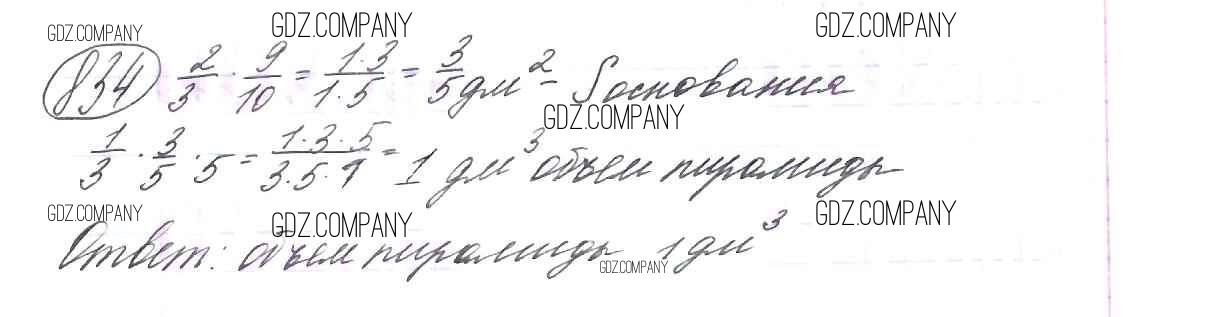 GDZ.COMPANY GDZ.COMPANY GDZ.COMPANY
834 2/3 · 9/10 = 1·3/1·5 = 3/5 дм² - S основания
GDZ.COMPANY
1/3 · 3/5 · 5 = 1·3·5/3·5·1 = 1 дм³ объем пирамиды
GDZ.COMPANY GDZ.COMPANY GDZ.COMPANY
Ответ: объем пирамиды 1 дм³
GDZ.COMPANY